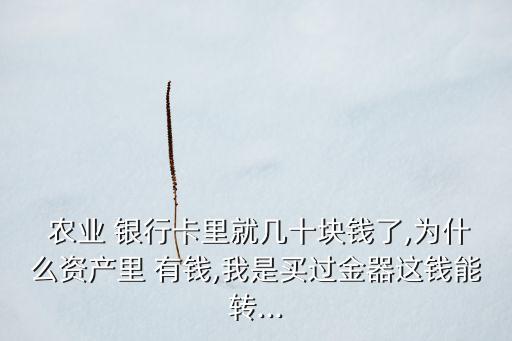 农业 银行卡里就几十块钱了,为什
么资产里 有钱,我是买过金器这钱能
转...